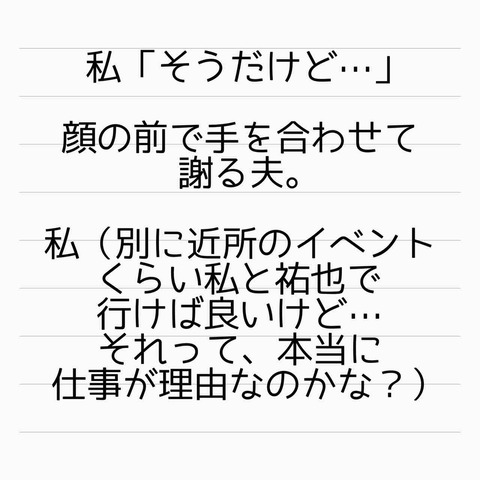 私「そうだけど…」
顔の前で手を合わせて
謝る夫。
私（別に近所のイベント
くらい私と祐也で
行けば良いけど…
それって、本当に
仕事が理由なのかな？）